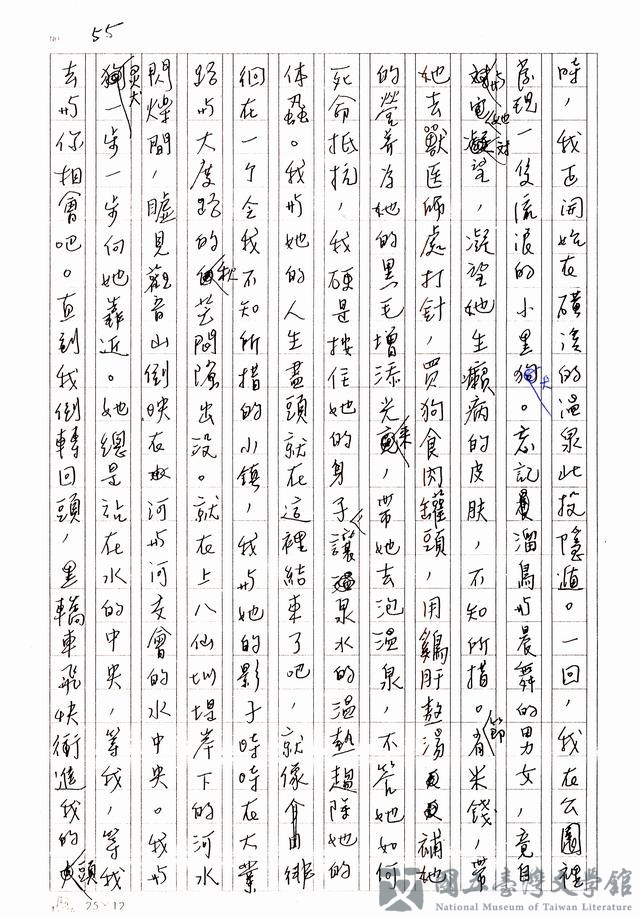 55
時，我正開始在磺溪的溫泉此投隱遁。一回，我在公園裡
發現一隻流浪的小黑犬。忘記溜鳥與晨舞的男女，竟自
與她對望，凝望她生癩病的皮肤，不知所措。節米錢，帶
她去獸医師處打針，買狗食肉罐頭，用鷄肝熬湯補她
的營养为她的黑毛增添光采，帶她去泡溫泉，不管她如何
死命抵抗，我硬是按住她的身子讓泉水的溫熱趨除她的
体蟲。我與她的人生盡頭就在這裡結束了吧，就像徘
徊在一个令我不知所措的小鎮，我與她的影子時時在大業
路與大度路的秋芒間隱出没。就在上八仙圳堤岸下的河水
閃爍間，瞇見觀音山倒映在河與河交會的水中央。我與
灵犬一步一步向她靠近。她總是站在水的中央，等我，等我
去與你相會吧。直到我倒轉回頭，黑轎車飛快衝進我的頭
25×12
國立臺灣文學館
National Museum of Taiwan Literature